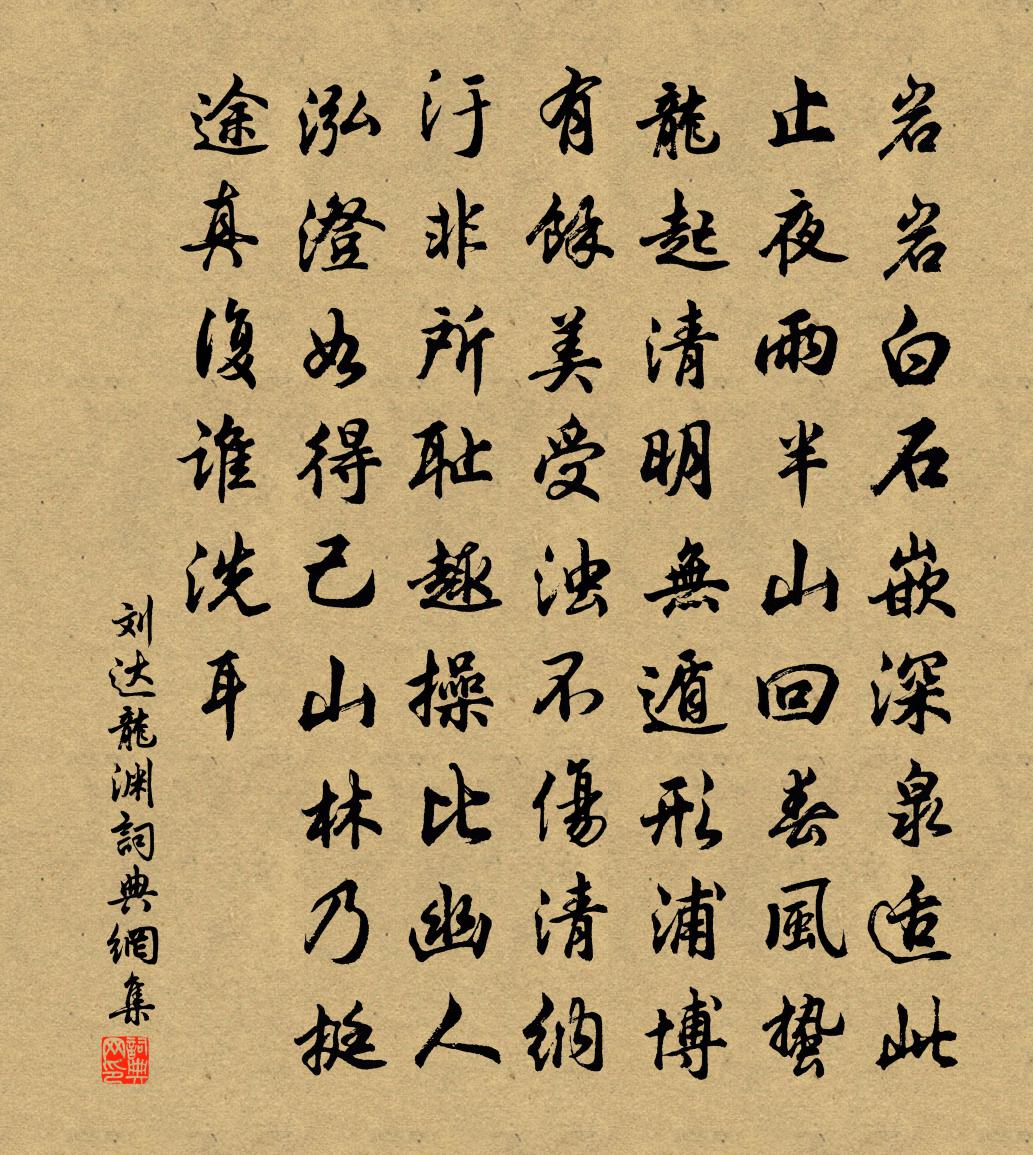 岩岩白石嵌深泉适此
止夜雨半山回春風蟄
龍起清明無遁形浦博
有餘美受浊不傷清納
汙非所耻趣操比幽人
泓澄如得己山林乃挺
途真復谁洗耳
刘达龍渊詞典網集
詞典网印